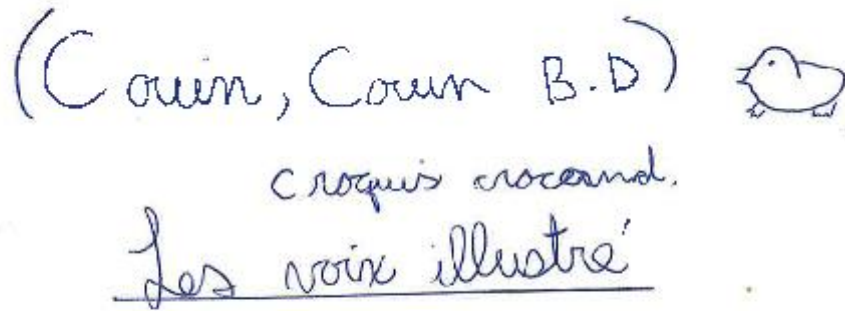 (Couin, Couin B.D)
croquis
Les voix illustré